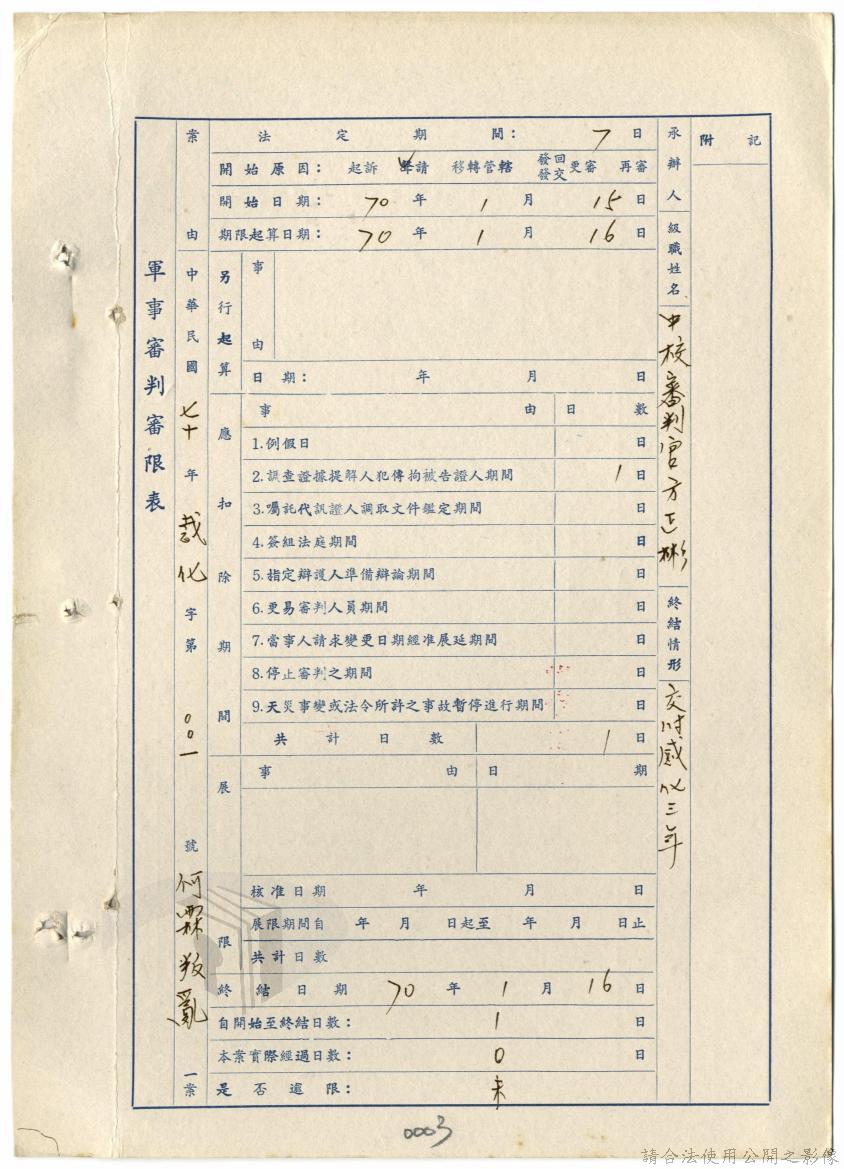 軍事審判審限表
案由 中華民國七十年裁化字第〇〇一號何霖叛亂一案
法定期間： 7 日
開始原因： 起訴 聲請 移轉管轄 發回發交更審 再審
開始日期： 70 年 1 月 15 日
期限起算日期： 70 年 1 月 16 日
另行起算
事由
日期： 年 月 日
應扣除期間
事由 日數
1.例假日 日
2.調查證據提解人犯傳拘被告證人期間 1 日
3.囑託代訊證人調取文件鑑定期間 日
4.簽組法庭期間 日
5.指定辯護人準備辯論期間 日
6.更易審判人員期間 日
7.當事人請求變更日期經准展延期間 日
8.停止審判之期間 日
9.天災事變或法令所許之事故暫停進行期間 日
共計日數 1 日
展限
事由 日期
核准日期 年 月 日
展限期間自 年 月 日起至 年 月 日止
共計日數
終結日期 70 年 1 月 16 日
自開始至終結日數： 1 日
本案實際經過日數： 0 日
是否逾限： 未
承辦人級職姓名 中校審判官方正彬
終結情形 交付感化三年
附記
0003
請合法使用公開之影像